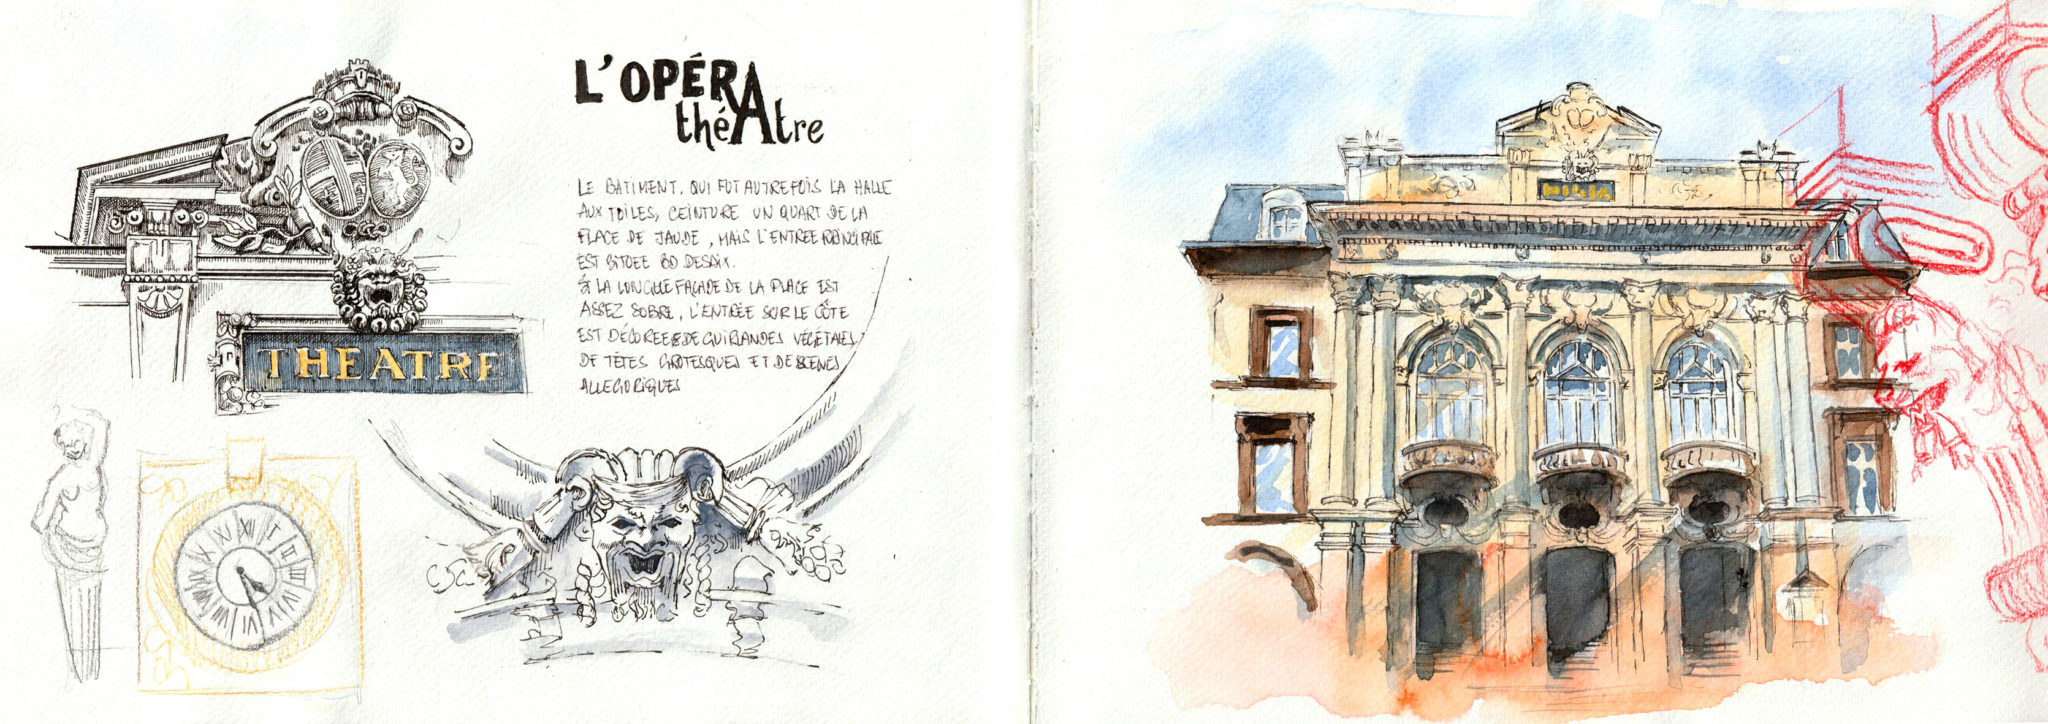 L'OPÉRA
théAtre
LE BATIMENT, QUI FUT AUTREFOIS LA HALLE
AUX TOILES, CEINTURE UN QUART DE LA
PLACE DE JAUDE, MAIS L'ENTREE PRINCIPALE
EST SITUEE BD DESAIX.
SI LA LONGUE FAÇADE DE LA PLACE EST
ASSEZ SOBRE, L'ENTRÉE SUR LE CÔTE
EST DÉCOREE DE GUIRLANDES VÉGÉTALES
DE TÊTES GROTESQUES ET DE SCENES
ALLEGORIQUES
THEATRE
XII I II III IV V VI VII VIII IX X XI